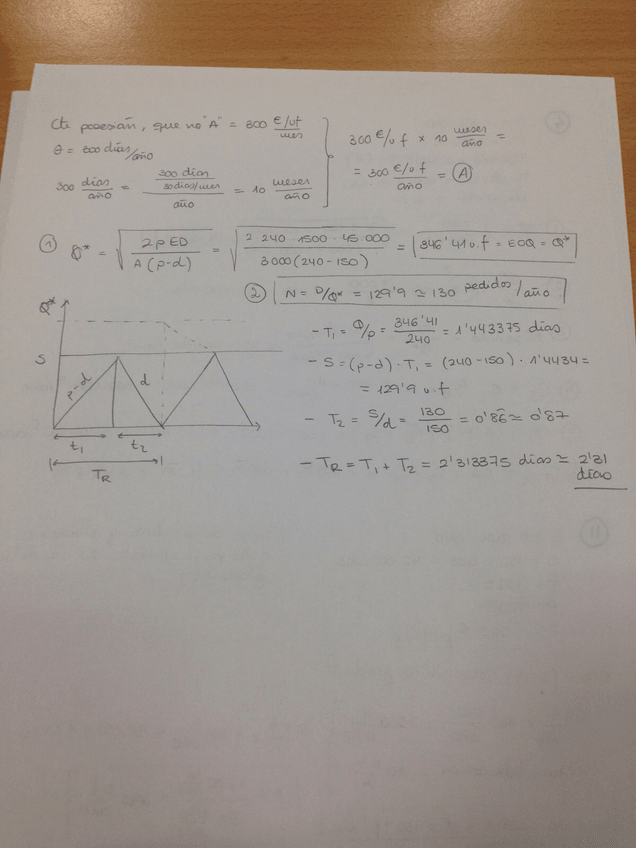 Cte posesión, que no "A" = 300 €/uf/mes
θ = 300 días/año
300 días/año = (300 días / 30 días/mes)/año = 10 meses/año
300 €/uf × 10 meses/año =
= 300 €/uf/año = A
① Q* = √(2pED / A(p-d)) = √(2 · 240 · 1500 · 45 000 / 3000(240-150)) = 346'41 u.f = EOQ = Q*
② N = D/Q* = 129'9 ≃ 130 pedidos/año
- T1 = Q/p = 346'41/240 = 1'443375 días
- S = (p-d) · T1 = (240-150) · 1'4434 =
= 129'9 u.f
- T2 = S/d = 130/150 = 0'86 ≃ 0'87
- TR = T1 + T2 = 2'313375 días ≃ 2'31
días
Q*
S
p-d
d
t1
t2
TR